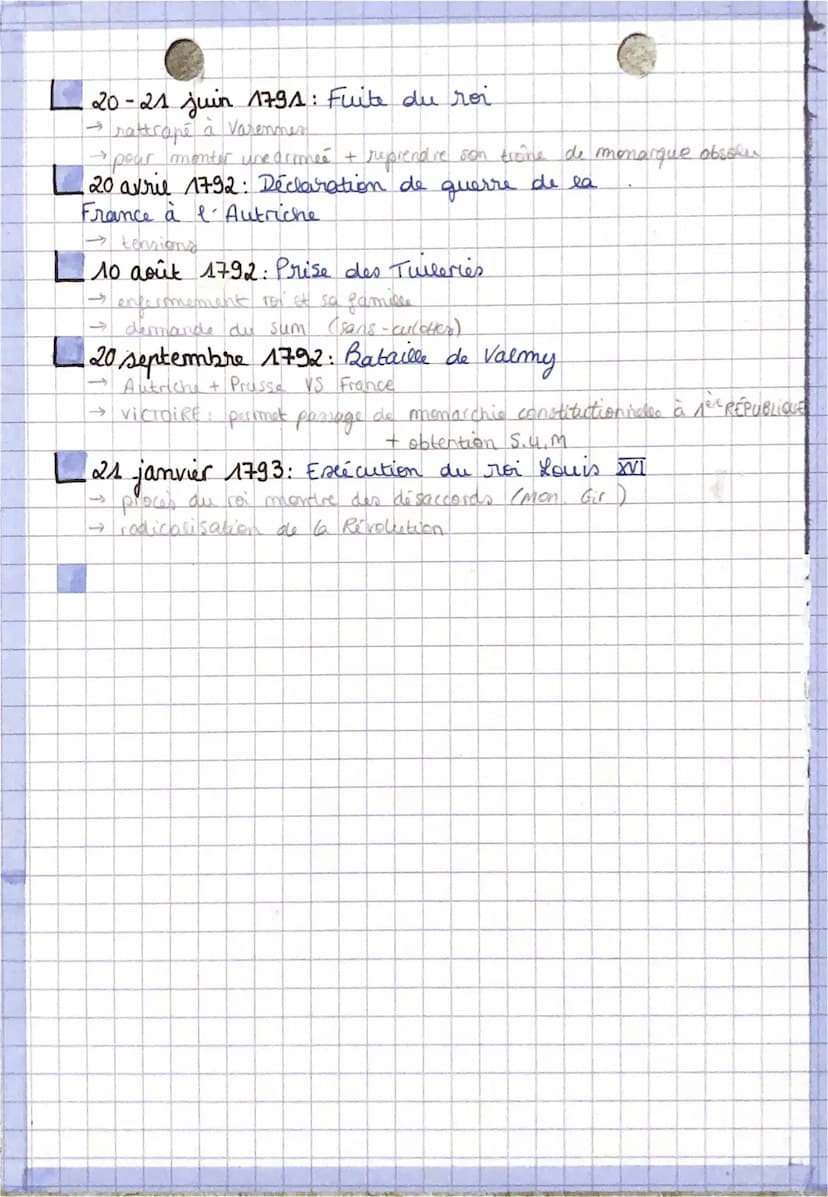 20-21 juin 1791: Fuite du roi
→ rattrapé à Varennes
→ pour monter une armée + reprendre son trône de monarque absolu
20 avril 1792: Déclaration de guerre de la
France à l'Autriche
→ tensions
10 août 1792: Prise des Tuileries
→ enfermement roi et sa famille
→ demande du sum (sans-culottes)
20 septembre 1792: Bataille de Valmy
→ Autriche + Prusse VS France
→ VICTOIRE: permet passage de monarchie constitutionnelle à 1ère RÉPUBLIQUE
+ obtention S.U.M
21 janvier 1793: Exécution du roi Louis XVI
→ procès du roi montre des désaccords (Mon. Gir)
→ radicalisation de la Révolution